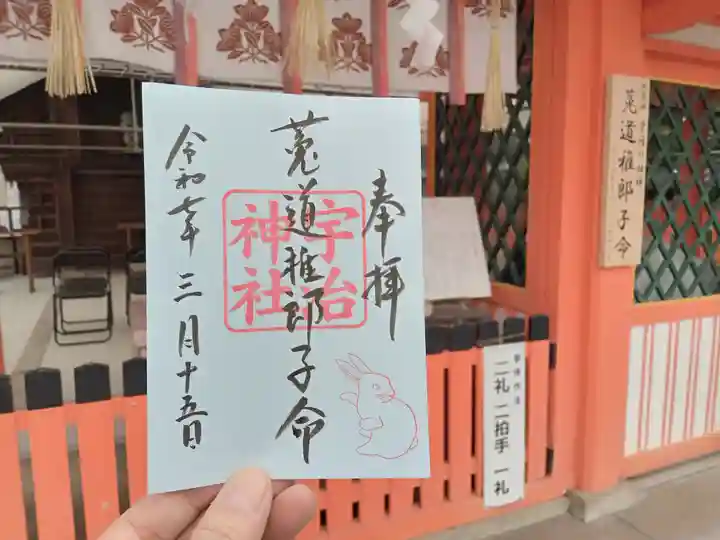 奉拝
宇治
神社
菟道稚郎子命
令和七年三月十五日
菟道稚郎子命
参拝作法
二礼 二拍手 一礼